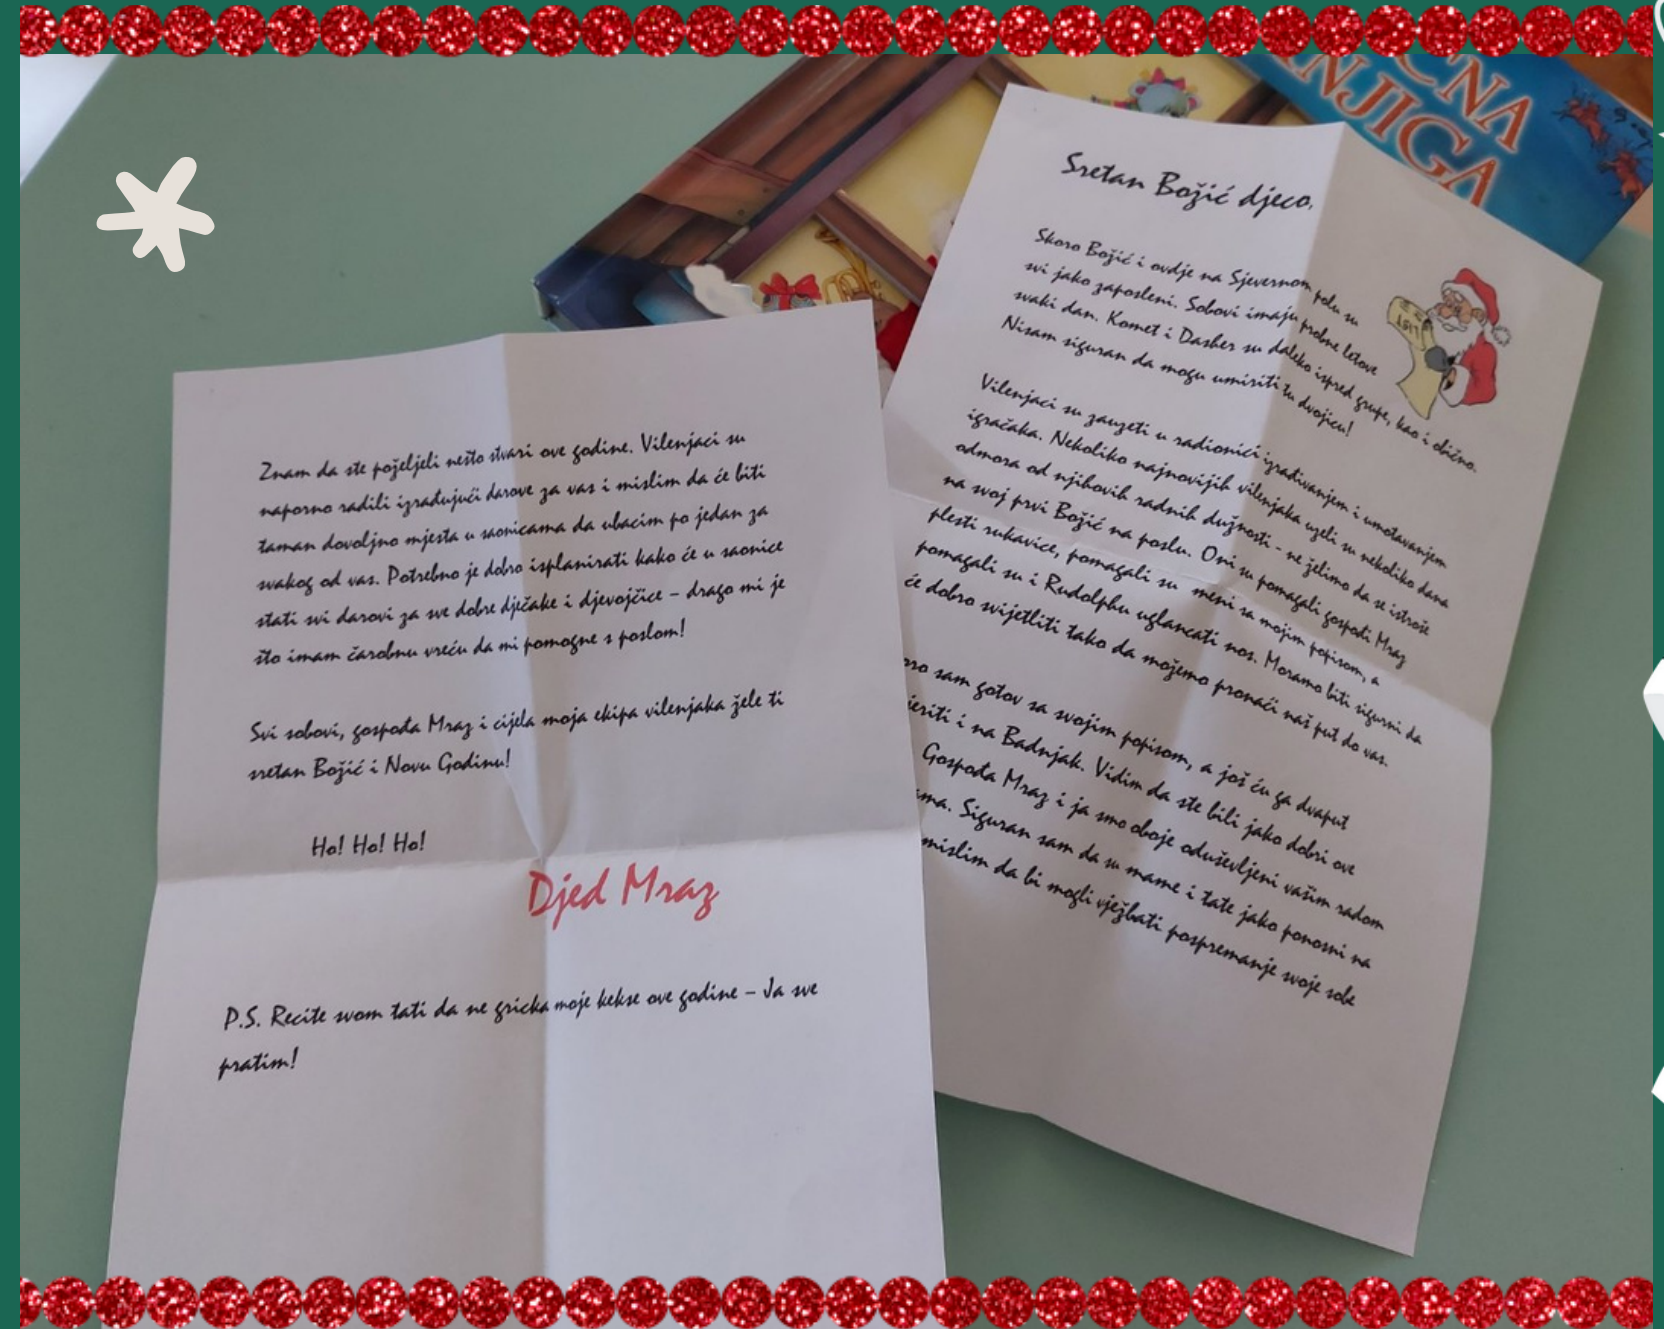 ČNA
NJIGA
Sretan Božić djeco,
Skoro Božić i ovdje na Sjevernom polu su
svi jako zaposleni. Sobovi imaju probne letove
svaki dan. Komet i Dasher su daleko ispred grupe, kao i obično.
Nisam siguran da mogu umiriti tu dvojicu!
Vilenjaci su zauzeti u radionici izrađivanjem i umotavanjem
igračaka. Nekoliko najnovijih vilenjaka uzeli su nekoliko dana
odmora od njihovih radnih dužnosti - ne želimo da se istroše
na svoj prvi Božić na poslu. Oni su pomagali gospođi Mraz
plesti rukavice, pomagali su meni sa mojim popisom, a
pomagali su i Rudolphu uglancati nos. Moramo biti sigurni da
će dobro svijetliti tako da možemo pronaći naš put do vas.
sam gotov sa svojim popisom, a još ću ga dvaput
i na Badnjak. Vidim da ste bili jako dobri ove
Gospođa Mraz i ja smo oboje oduševljeni vašim radom
Siguran sam da su mame i tate jako ponosni na
mislim da bi mogli vježbati pospremanje svoje sobe
LIST
Znam da ste poželjeli nešto stvari ove godine. Vilenjaci su
naporno radili izrađujući darove za vas i mislim da će biti
taman dovoljno mjesta u saonicama da ubacim po jedan za
svakog od vas. Potrebno je dobro isplanirati kako će u saonice
stati svi darovi za sve dobre dječake i djevojčice – drago mi je
što imam čarobnu vreću da mi pomogne s poslom!
Svi sobovi, gospođa Mraz i cijela moja ekipa vilenjaka žele ti
sretan Božić i Novu Godinu!
Ho! Ho! Ho!
Djed Mraz
P.S. Recite svom tati da ne gricka moje kekse ove godine – Ja sve
pratim!